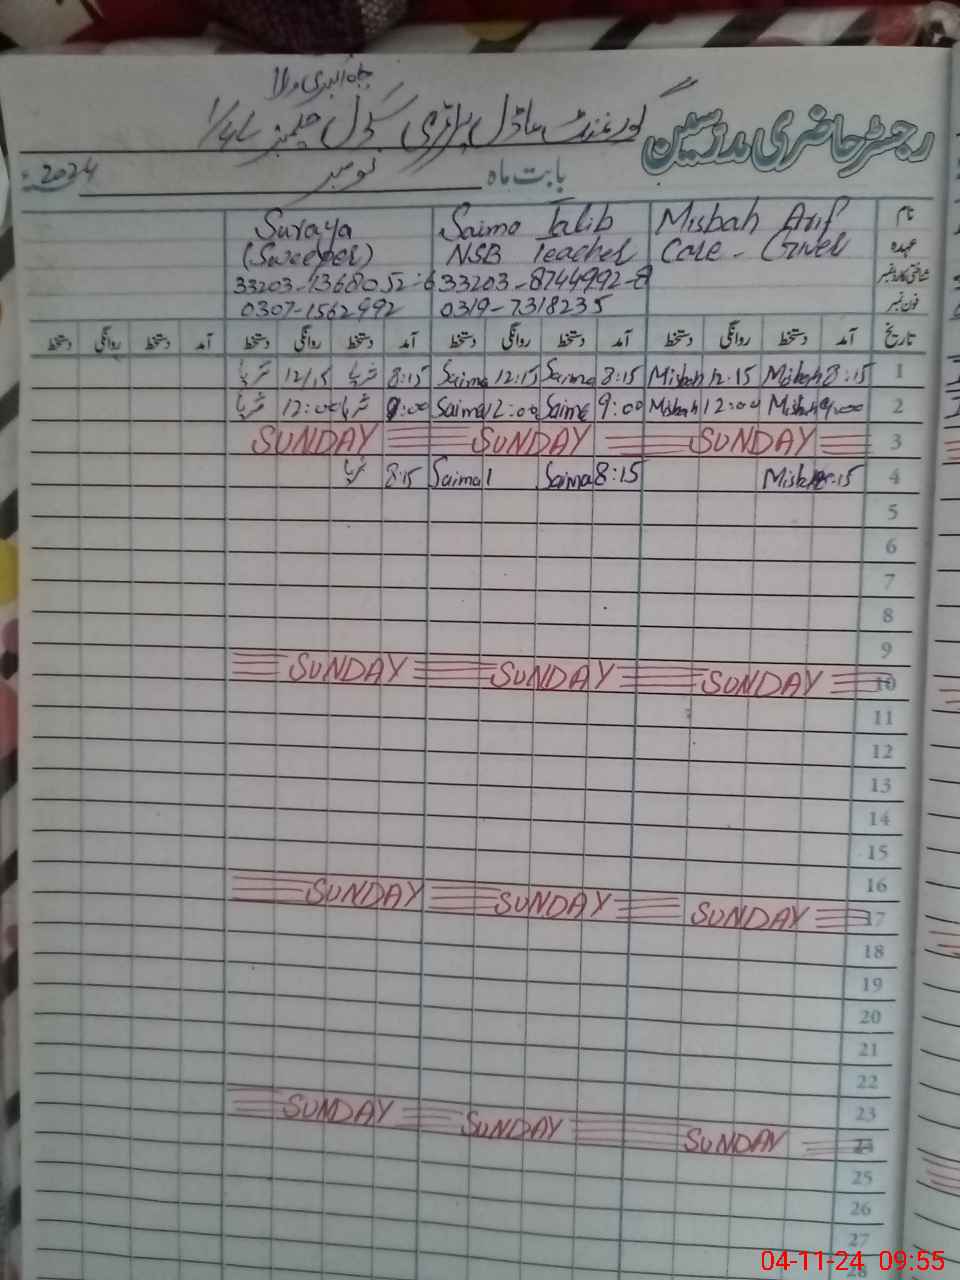 چاہ اکبری والا
رجسٹر حاضری مدرسین گورنمنٹ ماڈل پرائمری سکول چک نمبر
بابت ماہ نومبر 2024ء
نام Misbah Arif Saima Talib Suraya
عہدہ Care - Giver NSB Teacher (Sweeper)
شناختی کارڈ نمبر 33203-8744992-8 33203-1368052-6
فون نمبر 0319-7318235 0307-1562992
تاریخ آمد دستخط روانگی دستخط آمد دستخط روانگی دستخط آمد دستخط روانگی دستخط آمد دستخط روانگی دستخط
1 8:15 Misbah 12:15 Misbah 8:15 Saima 12:15 Saima 8:15 ثریا 12/15 ثریا
2 9:00 Misbah 12:00 Misbah 9:00 Saima 12:00 Saima 9:00 ثریا 12:00 ثریا
3 SUNDAY SUNDAY SUNDAY
4 8:15 Misbah 8:15 Saima 1 Saima 8:15 ثریا
5
6
7
8
9
10 SUNDAY SUNDAY SUNDAY
11
12
13
14
15
16
17 SUNDAY SUNDAY SUNDAY
18
19
20
21
22
23
24 SUNDAY SUNDAY SUNDAY
25
26
27
28
04-11-24 09:55